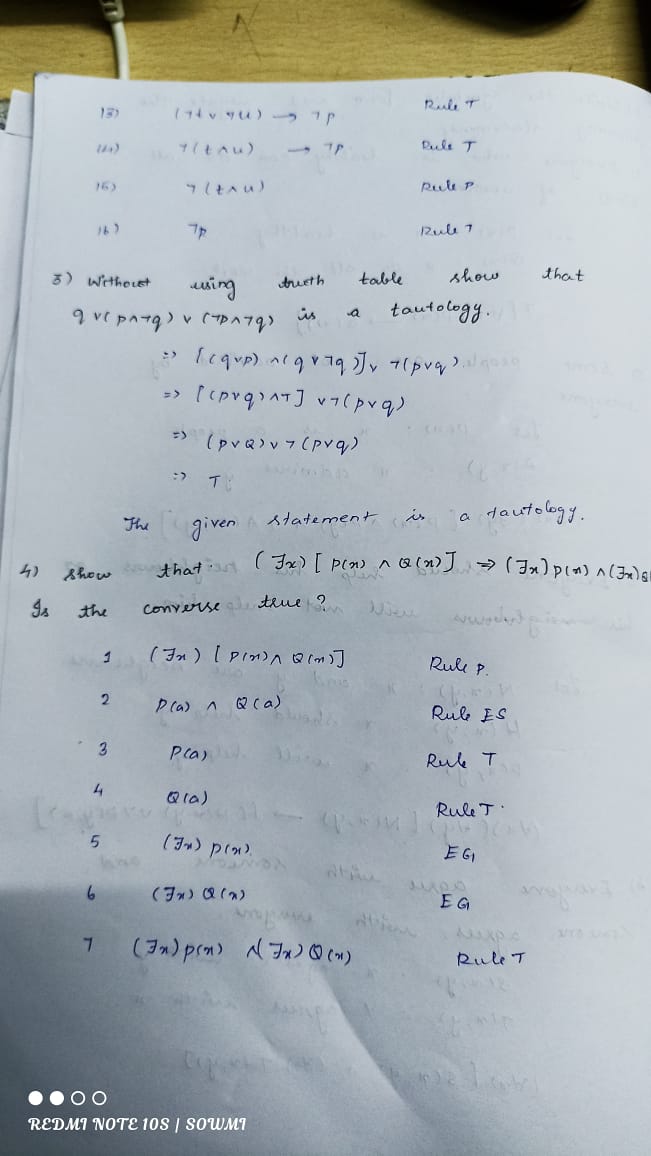 13) (¬t ∨ ¬u) → ¬p Rule T
14) ¬(t ∧ u) → ¬p Rule T
15) ¬(t ∧ u) Rule P
16) ¬p Rule T
3) Without using truth table show that
q ∨ (p ∧ ¬q) ∨ (¬p ∧ ¬q) is a tautology.
=> [(q ∨ p) ∧ (q ∨ ¬q)] ∨ ¬(p ∨ q).
=> [(p ∨ q) ∧ T] ∨ ¬(p ∨ q)
=> (p ∨ Q) ∨ ¬(p ∨ q)
=> T
The given statement is a tautology.
4) Show that (∃x) [P(x) ∧ Q(x)] => (∃x) P(x) ∧ (∃x) Q
Is the converse true?
1 (∃x) [P(x) ∧ Q(x)] Rule P.
2 P(a) ∧ Q(a) Rule ES
3 P(a) Rule T
4 Q(a) Rule T.
5 (∃x) P(x) EG
6 (∃x) Q(x) EG
7 (∃x) P(x) ∧ (∃x) Q(x) Rule T
REDMI NOTE 10S | SOWMI